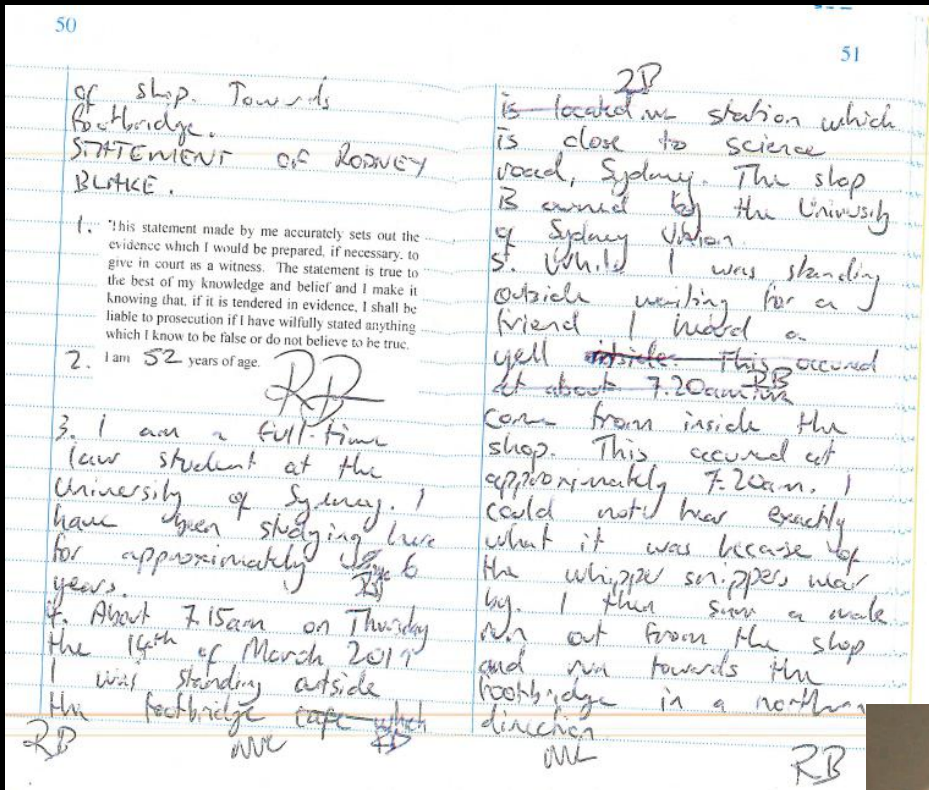 50
of shop. Towards
footbridge.
STATEMENT OF RODNEY
BLAKE.
1. This statement made by me accurately sets out the
evidence which I would be prepared, if necessary, to
give in court as a witness. The statement is true to
the best of my knowledge and belief and I make it
knowing that, if it is tendered in evidence, I shall be
liable to prosecution if I have wilfully stated anything
which I know to be false or do not believe to be true.
2. I am 52 years of age.
RB
3. I am a full-time
law student at the
University of Sydney. I
have been studying here
for approximately 6
RB
years.
4. About 7.15am on Thursday
the 14th of March 2019
I was standing outside
the footbridge cafe which
RB RB
51
is located station which
is close to science
road, Sydney. The shop
is owned by the University
of Sydney Union.
5. While I was standing
outside waiting for a
friend I heard a
yell inside. This occured
RB
at about 7.20am
come from inside the
shop. This occured at
approximately 7.20am. I
could not hear exactly
what it was because of
the whipper snippers near
by. I then saw a male
run out from the shop
and run towards the
footbridge in a northern
direction
RB